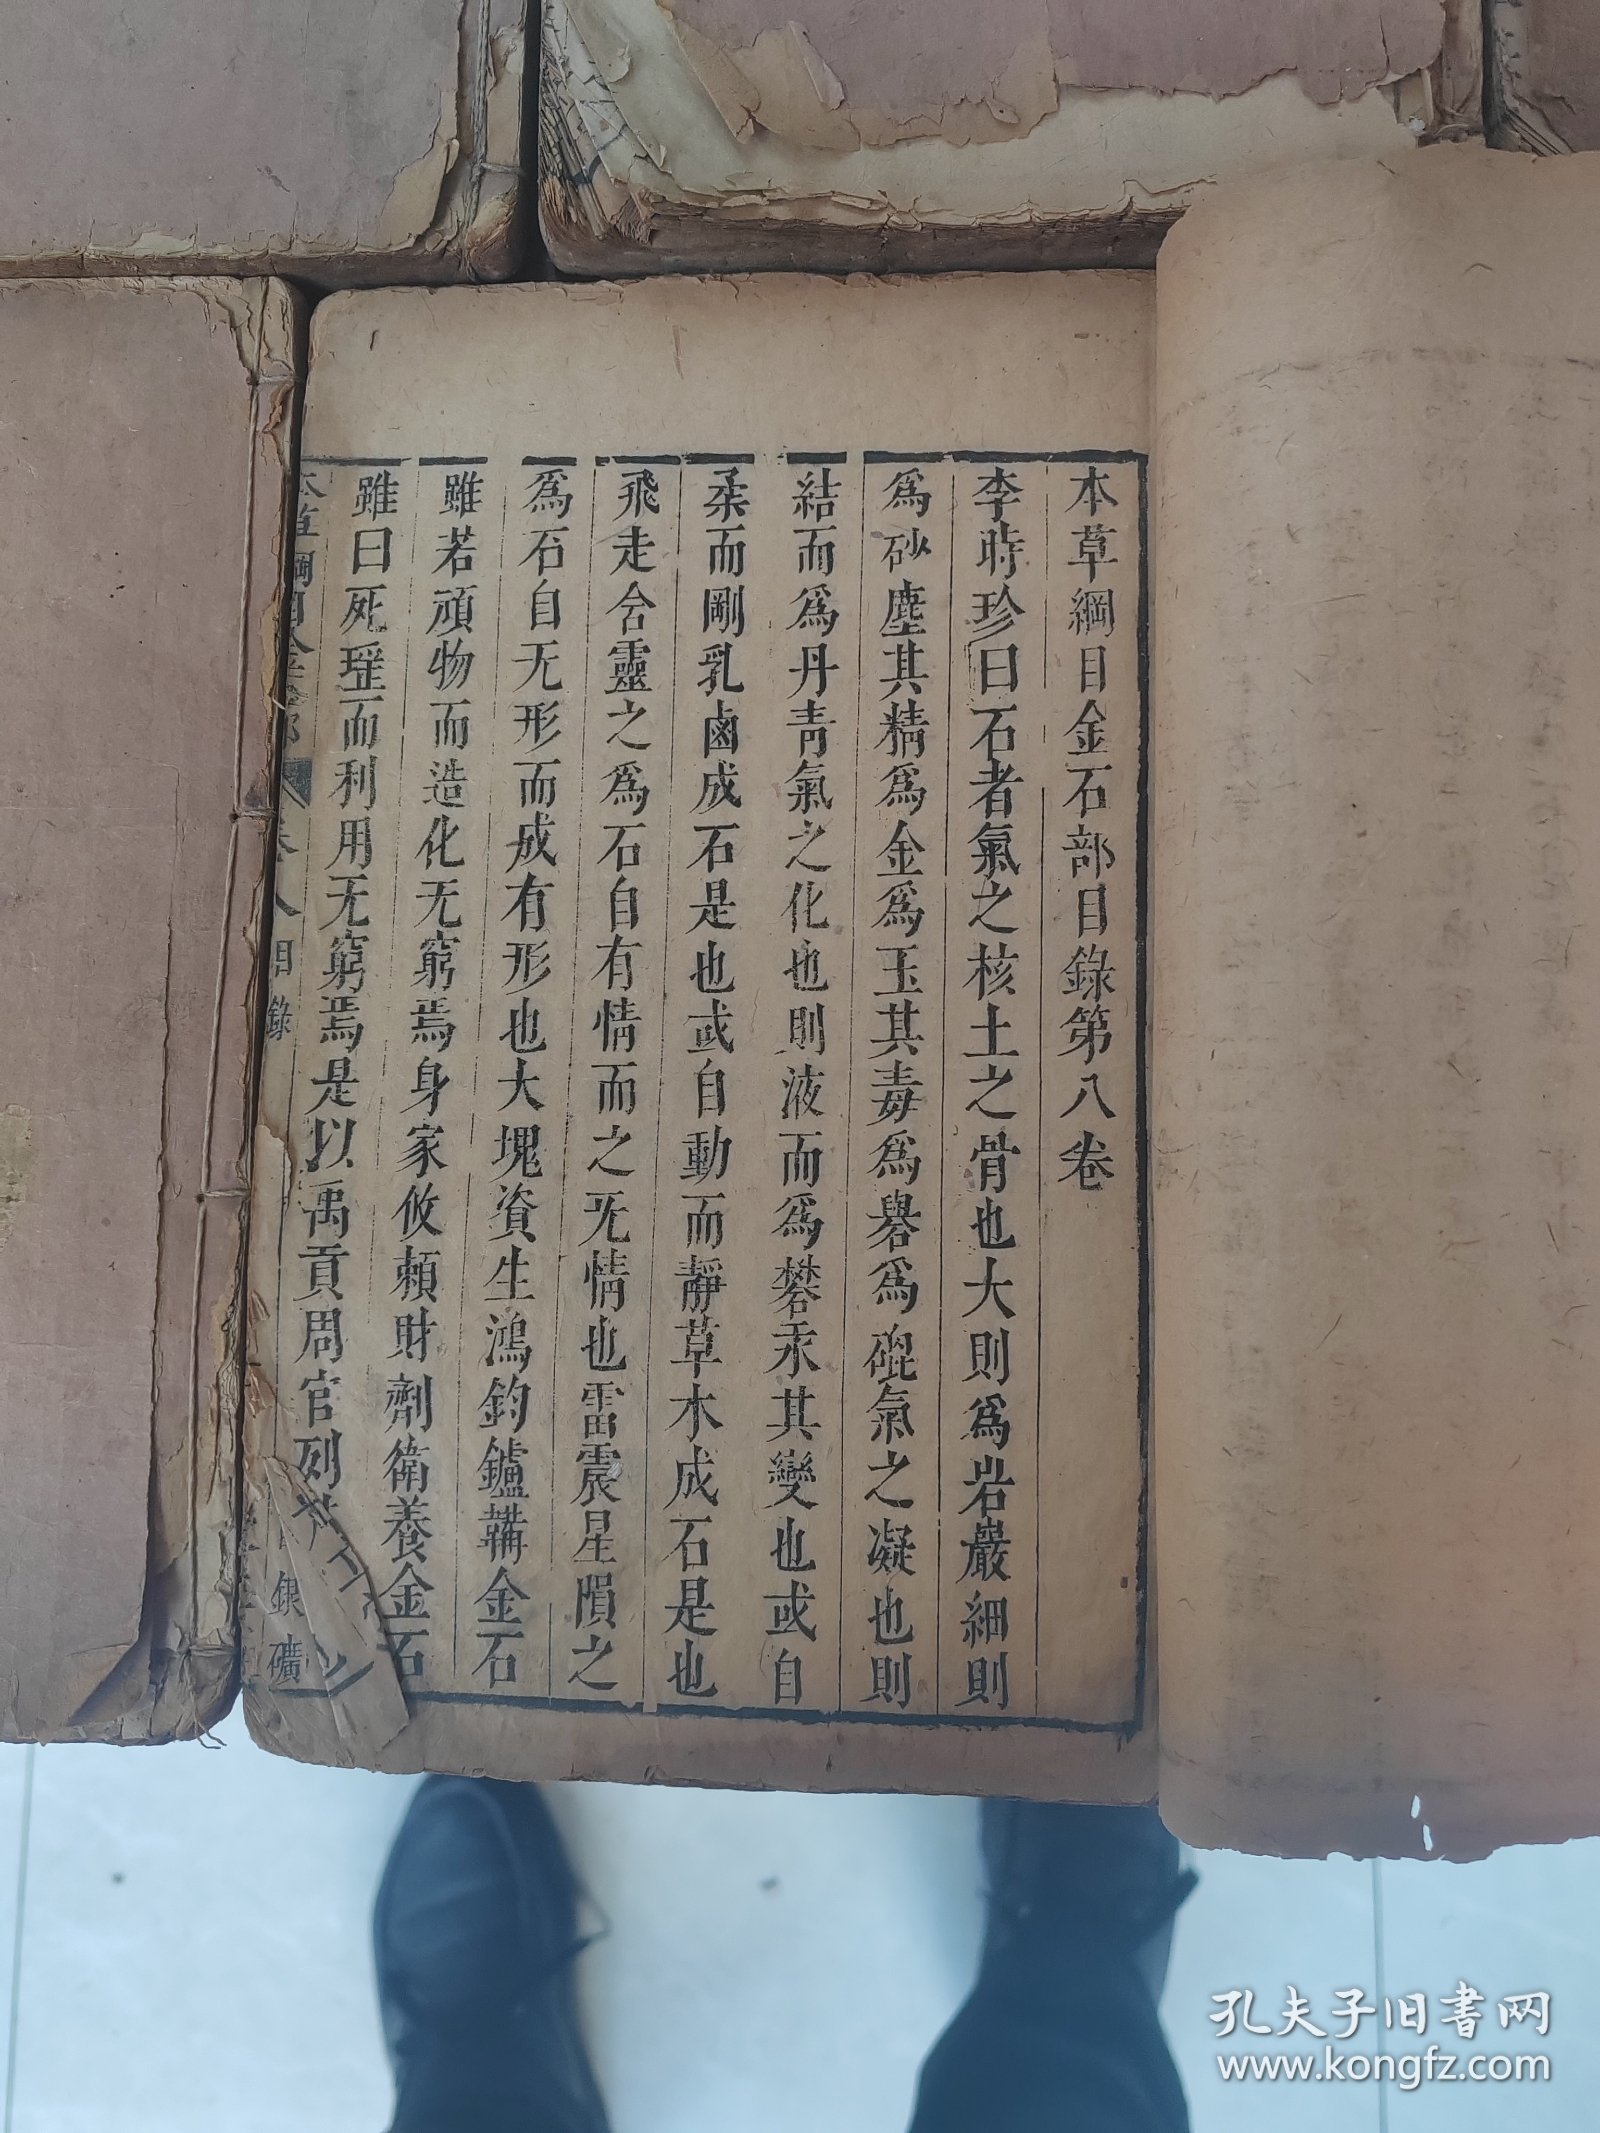 本草綱目金石部目錄第八卷
李時珍曰石者氣之核土之骨也大則爲岩巖細則
爲砂塵其精爲金爲玉其毒爲礜爲砒氣之凝也則
結而爲丹靑氣之化也則液而爲礬汞其變也或自
柔而剛乳鹵成石是也或自動而靜草木成石是也
飛走含靈之爲石自有情而之无情也雷震星隕之
爲石自无形而成有形也大塊資生鴻鈞鑪鞴金石
雖若頑物而造化无窮焉身家攸賴財劑衛養金石
雖曰死瑶而利用无窮焉是以禹貢周官列
本草綱目金石部 卷八 目錄
銀礦
孔夫子旧书网
www.kongfz.com